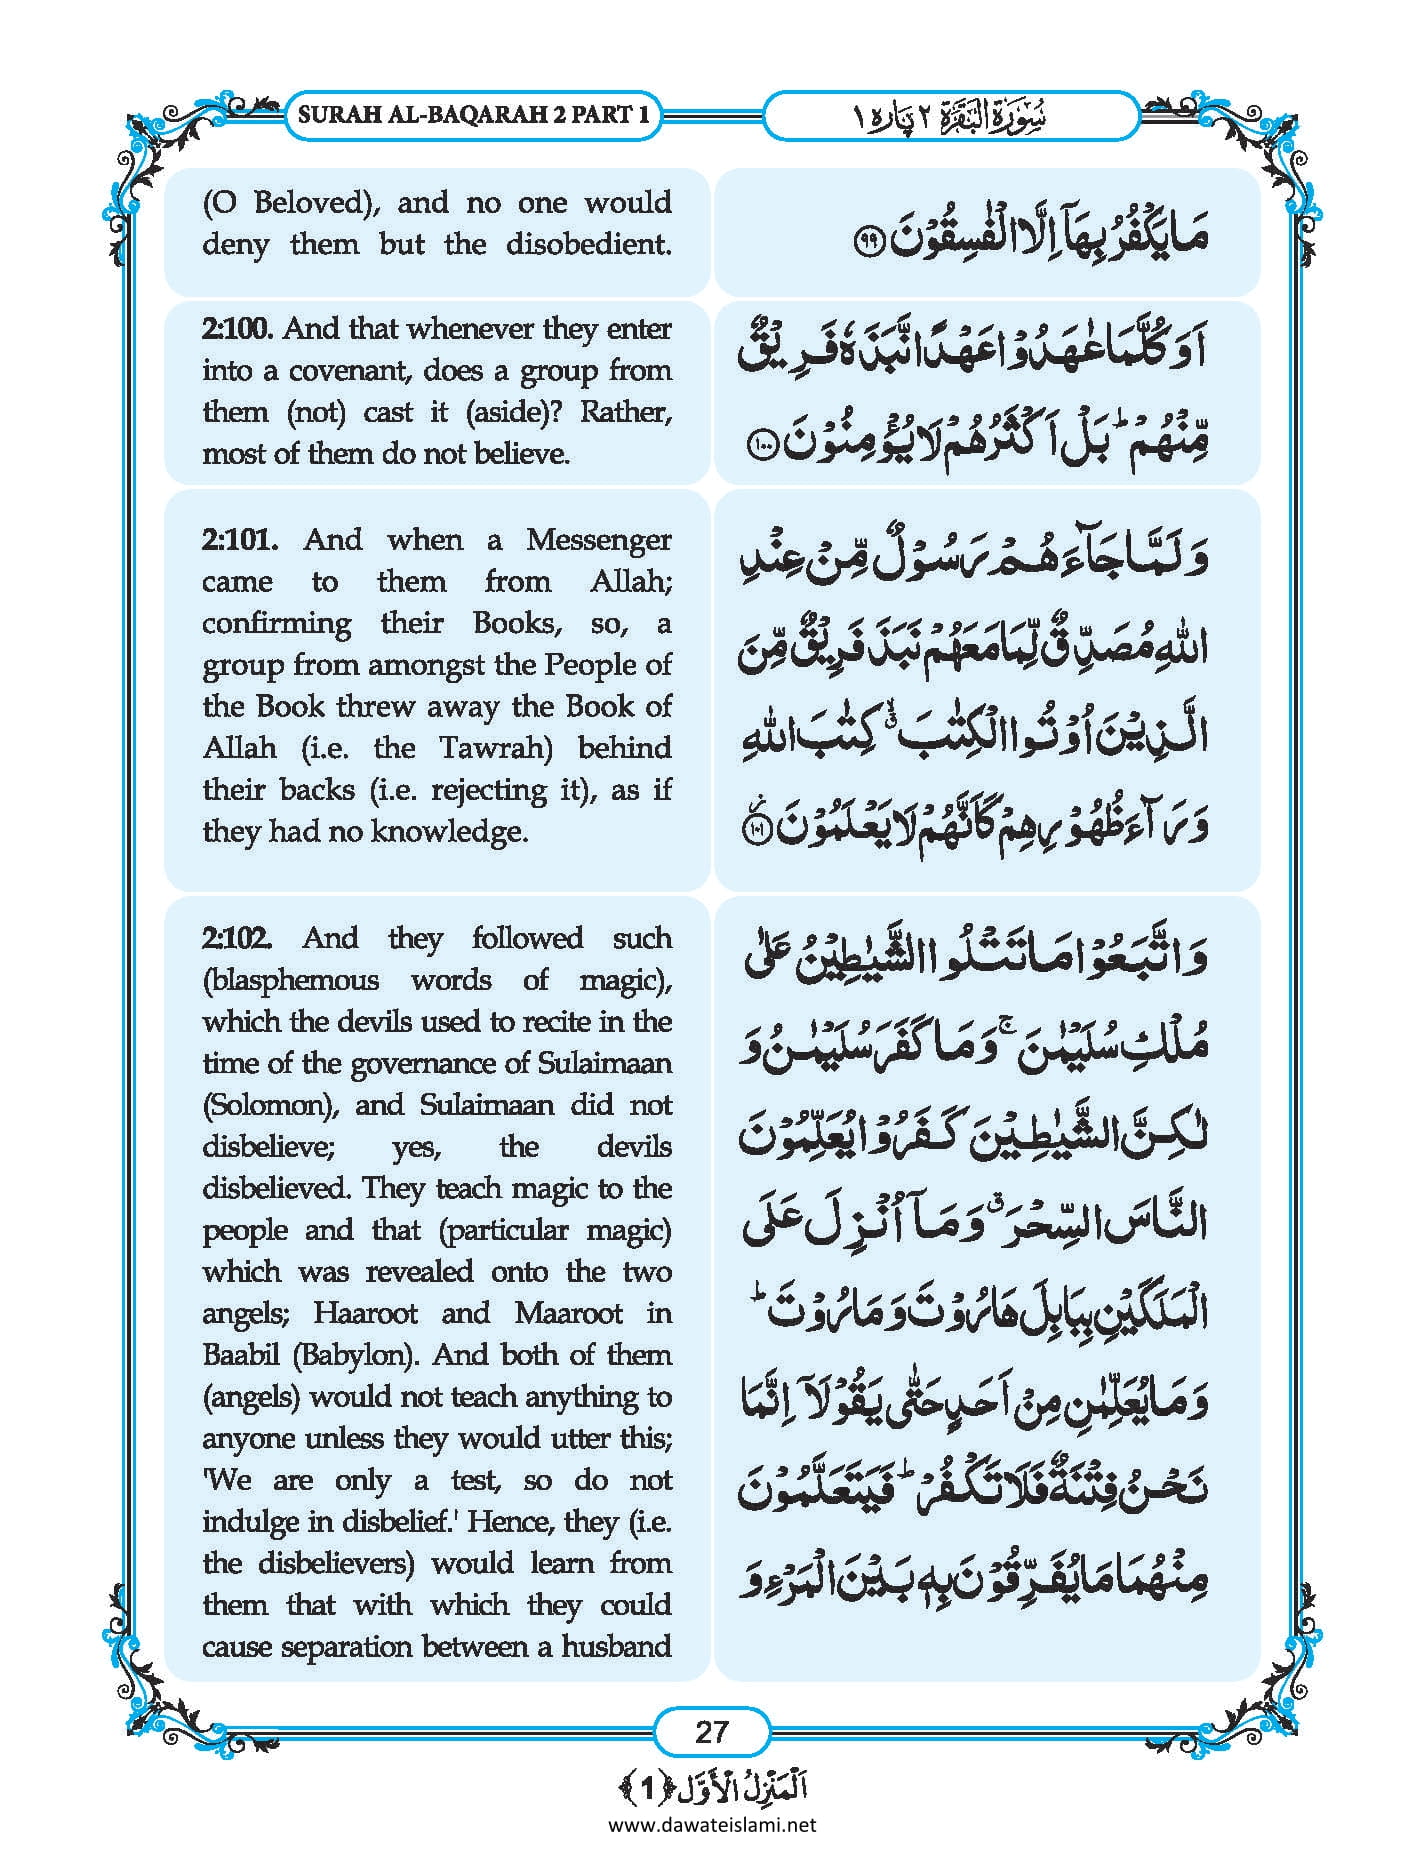 SURAH AL-BAQARAH 2 PART 1
سُوْرَۃُ الْبَقَرَۃ ۲ پارہ ۱
(O Beloved), and no one would
deny them but the disobedient.
مَا یَكْفُرُ بِهَاۤ اِلَّا الْفٰسِقُوْنَ ﴿۹۹﴾
2:100. And that whenever they enter
into a covenant, does a group from
them (not) cast it (aside)? Rather,
most of them do not believe.
اَوَ كُلَّمَا عٰهَدُوْا عَهْدًا نَّبَذَهٗ فَرِیْقٌ
مِّنْهُمْ ؕ بَلْ اَكْثَرُهُمْ لَا یُؤْمِنُوْنَ ﴿۱۰۰﴾
2:101. And when a Messenger
came to them from Allah;
confirming their Books, so, a
group from amongst the People of
the Book threw away the Book of
Allah (i.e. the Tawrah) behind
their backs (i.e. rejecting it), as if
they had no knowledge.
وَ لَمَّا جَآءَهُمْ رَسُوْلٌ مِّنْ عِنْدِ
اللّٰهِ مُصَدِّقٌ لِّمَا مَعَهُمْ نَبَذَ فَرِیْقٌ مِّنَ
الَّذِیْنَ اُوْتُوا الْكِتٰبَ ۙۗ كِتٰبَ اللّٰهِ
وَرَآءَ ظُهُوْرِهِمْ كَاَنَّهُمْ لَا یَعْلَمُوْنَ ﴿۱۰۱﴾
2:102. And they followed such
(blasphemous words of magic),
which the devils used to recite in the
time of the governance of Sulaimaan
(Solomon), and Sulaimaan did not
disbelieve; yes, the devils
disbelieved. They teach magic to the
people and that (particular magic)
which was revealed onto the two
angels; Haaroot and Maaroot in
Baabil (Babylon). And both of them
(angels) would not teach anything to
anyone unless they would utter this;
'We are only a test, so do not
indulge in disbelief.' Hence, they (i.e.
the disbelievers) would learn from
them that with which they could
cause separation between a husband
وَ اتَّبَعُوْا مَا تَتْلُوا الشَّیٰطِیْنُ عَلٰی
مُلْكِ سُلَیْمٰنَ ۚ وَ مَا كَفَرَ سُلَیْمٰنُ وَ
لٰكِنَّ الشَّیٰطِیْنَ كَفَرُوْا یُعَلِّمُوْنَ
النَّاسَ السِّحْرَ ۗ وَ مَاۤ اُنْزِلَ عَلَی
الْمَلَكَیْنِ بِبَابِلَ هَارُوْتَ وَ مَارُوْتَ ؕ
وَ مَا یُعَلِّمٰنِ مِنْ اَحَدٍ حَتّٰی یَقُوْلَاۤ اِنَّمَا
نَحْنُ فِتْنَةٌ فَلَا تَكْفُرْ ؕ فَیَتَعَلَّمُوْنَ
مِنْهُمَا مَا یُفَرِّقُوْنَ بِهٖ بَیْنَ الْمَرْءِ وَ
27
اَلْمَنْزِلُ الْاَوَّل ﴿1﴾
www.dawateislami.net